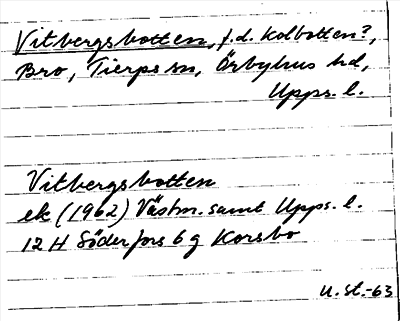 Vitbergsbotten, f.d. Kolbotten?,
Bro, Tierps sn, Örbyhus hd,
Upps. l.
Vitbergsbotten
ek (1962) Västm. samt Upps. l.
12 H Söderfors 6 g Korsbo
U. St.-63